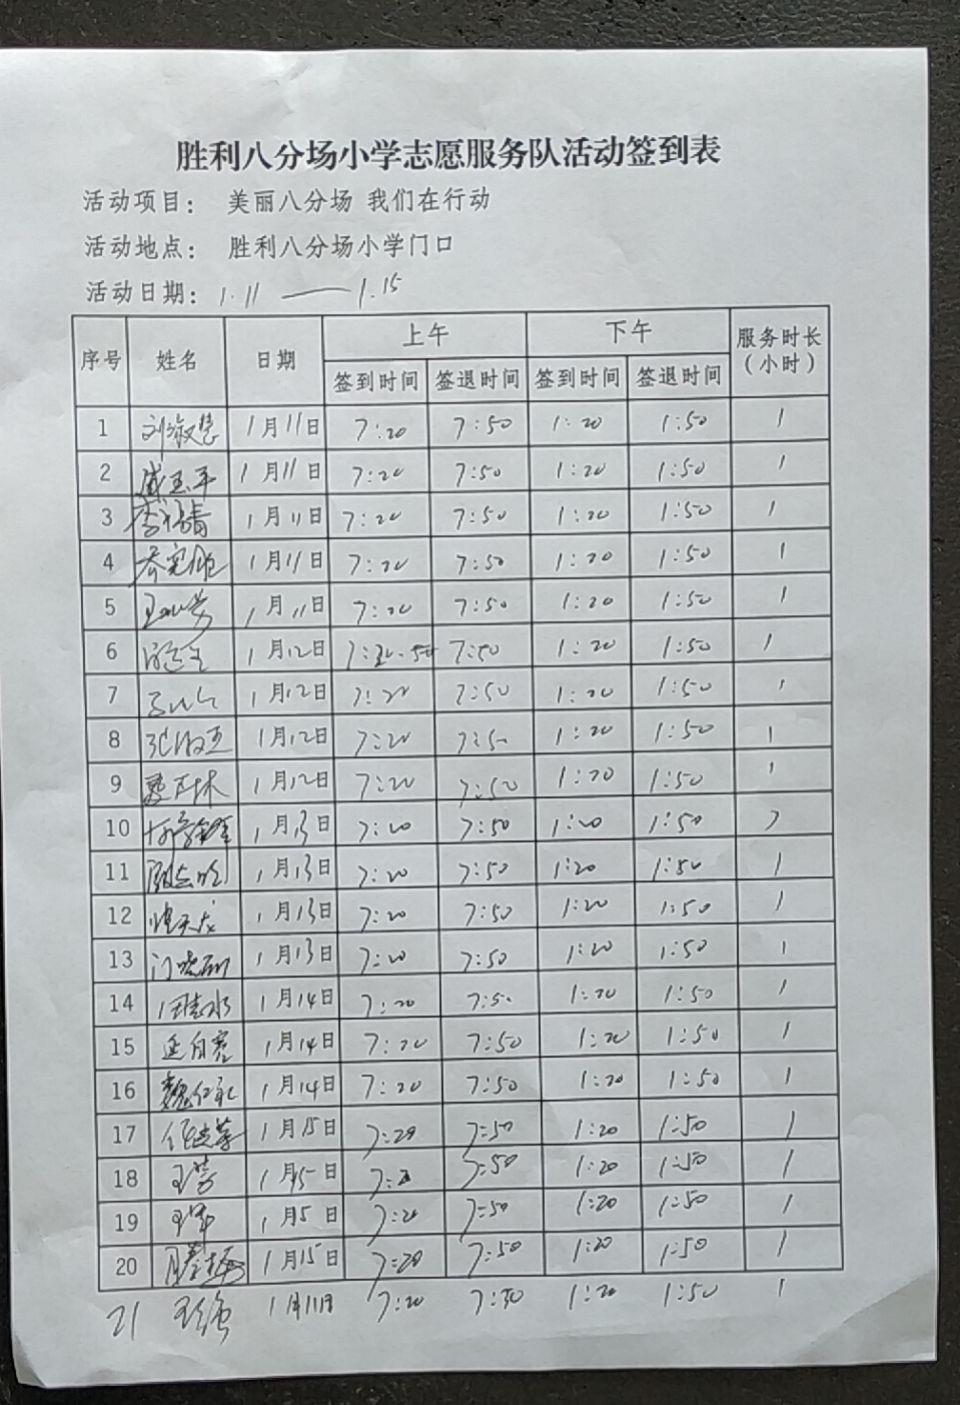 胜利八分场小学志愿服务队活动签到表
活动项目： 美丽八分场 我们在行动
活动地点： 胜利八分场小学门口
活动日期：1.11——1.15
序号 姓名 日期 上午 下午 服务时长（小时）
签到时间 签退时间 签到时间 签退时间
1 刘淑慧 1月11日 7:20 7:50 1:20 1:50 1
2 1月11日 7:20 7:50 1:20 1:50 1
3 1月11日 7:20 7:50 1:20 1:50 1
4 1月11日 7:20 7:50 1:20 1:50 1
5 1月11日 7:20 7:50 1:20 1:50 1
6 1月12日 7:50 1:20 1:50 1
7 1月12日 7:20 7:50 1:20 1:50 1
8 1月12日 7:20 7:50 1:20 1:50 1
9 1月12日 7:20 7:50 1:20 1:50 1
10 1月13日 7:20 7:50 1:20 1:50
11 1月13日 7:20 7:50 1:20 1:50 1
12 1月13日 7:20 7:50 1:20 1:50 1
13 门晓丽 1月13日 7:20 7:50 1:20 1:50 1
14 1月14日 7:20 7:50 1:20 1:50 1
15 1月14日 7:20 7:50 1:20 1:50 1
16 魏仁礼 1月14日 7:20 7:50 1:20 1:50 1
17 1月15日 7:20 7:50 1:20 1:50 1
18 王芳 1月15日 7:50 1:20 1:50 1
19 1月5日 7:20 7:50 1:20 1:50 1
20 1月15日 7:20 7:50 1:20 1:50 1
21 1月11日 7:20 7:50 1:20 1:50 1